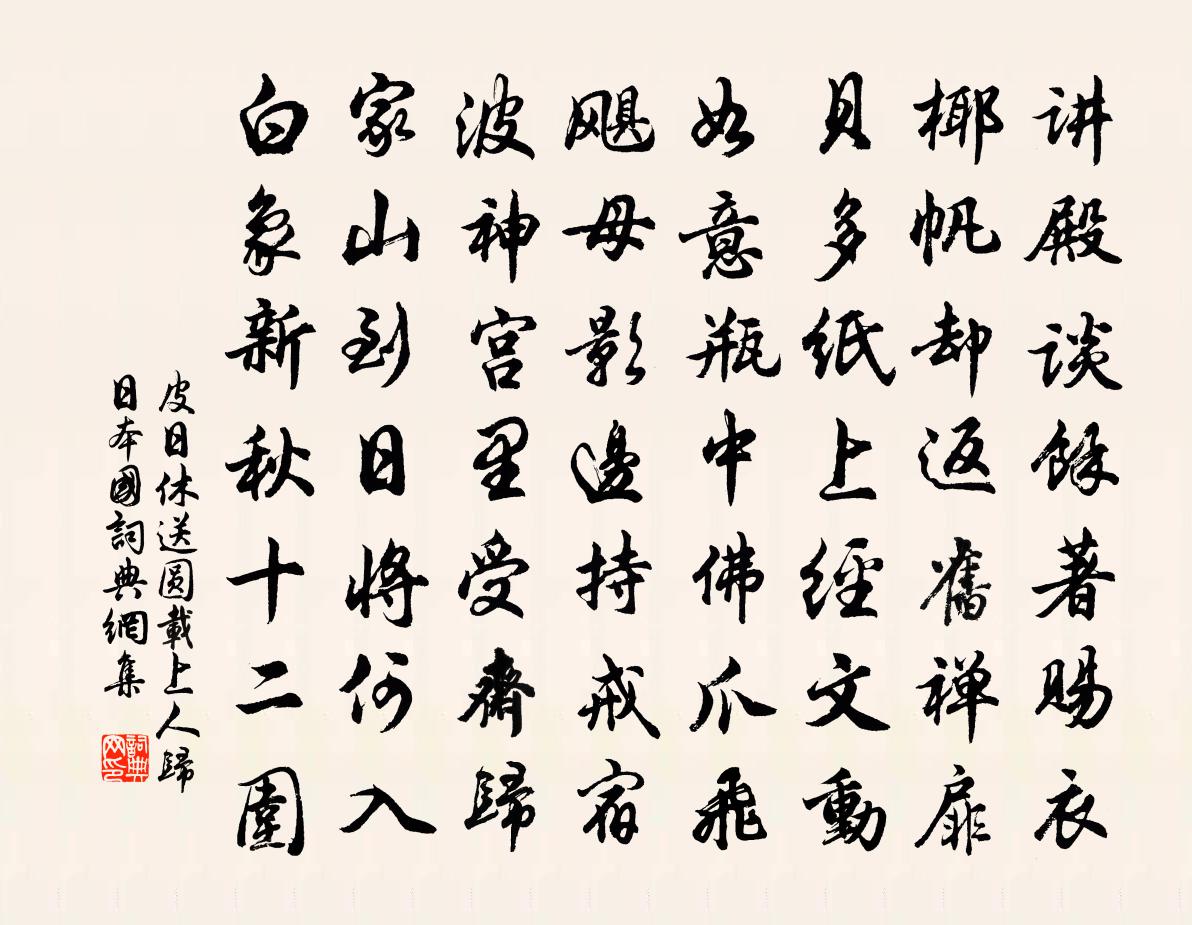 讲殿谈馀著赐衣
椰帆却返旧禅扉
贝多纸上经文動
如意瓶中佛爪飛
飓母影邊持戒宿
波神宫里受齋歸
家山到日将何入
白象新秋十二圍
皮日休送圆載上人歸
日本國詞典網集
詞典網印